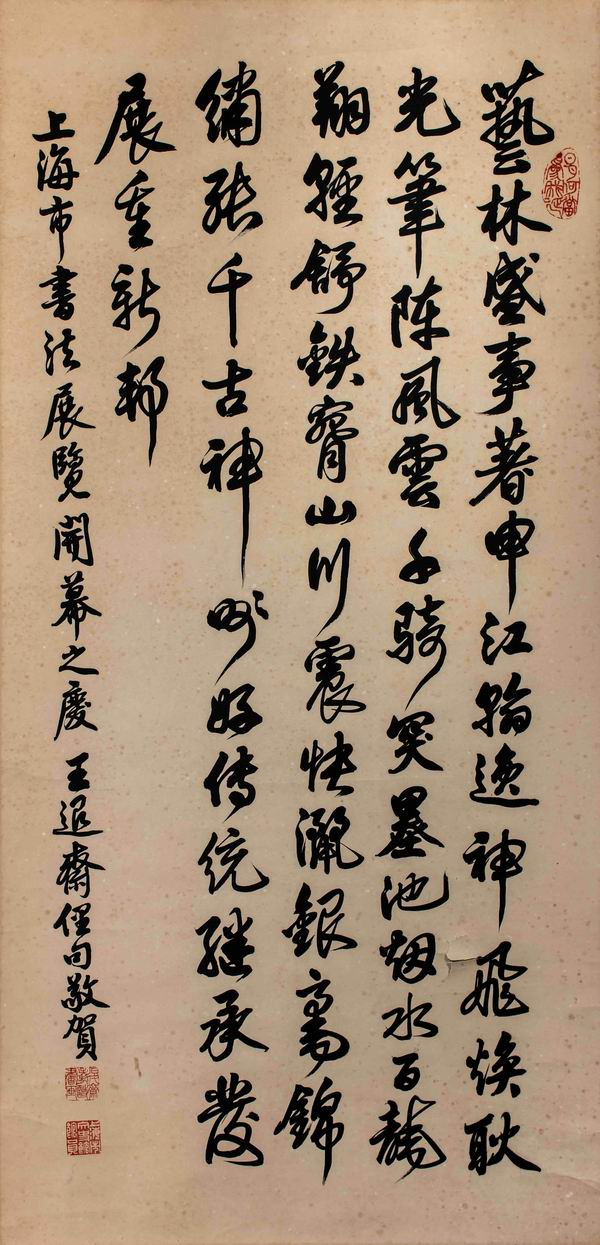 藝林盛事著申江翰逸神飛煥耿
光筆陣風雲千騎突墨池烟水百龍
翔輕舒鉄臂山川震快灑銀毫錦
繡張千古神州好傳統繼承發
展重新邦
上海市書法展覽開幕之慶 王退齋俚句敬賀